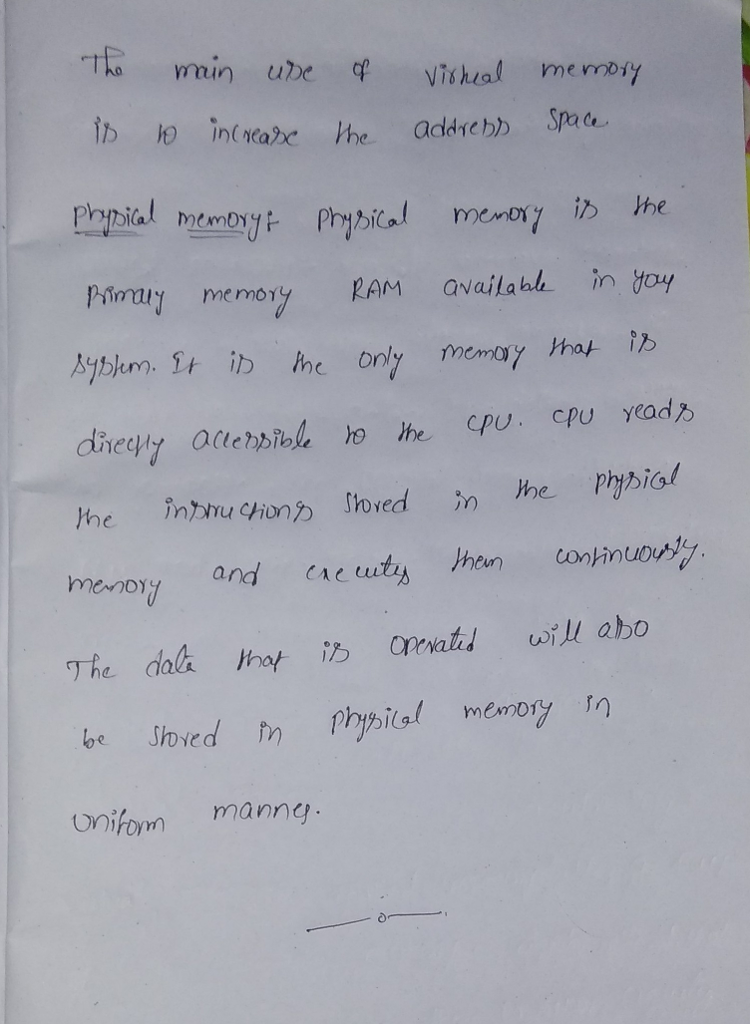 The main use of virtual memory
is to increase the address space
physical memory: physical memory is the
primary memory RAM available in your
system. It is the only memory that is
directly accessible to the CPU. CPU reads
the instructions stored in the physical
memory and executes them continuously.
The data that is operated will also
be stored in physical memory in
uniform manner.